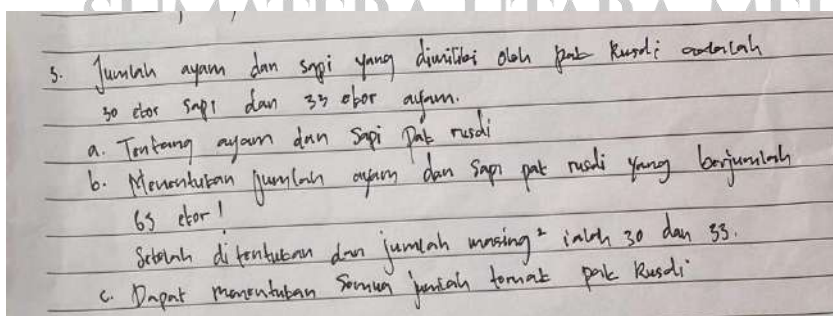 3. Jumlah ayam dan sapi yang dimiliki oleh pak Rusdi adalah
30 ekor sapi dan 33 ekor ayam.
a. Tentang ayam dan sapi Pak rusdi
b. Menentukan jumlah ayam dan sapi pak rusdi yang berjumlah
63 ekor!
Setelah di tentukan dan jumlah masing² ialah 30 dan 33.
c. Dapat menentukan Semua jumlah ternak pak Rusdi